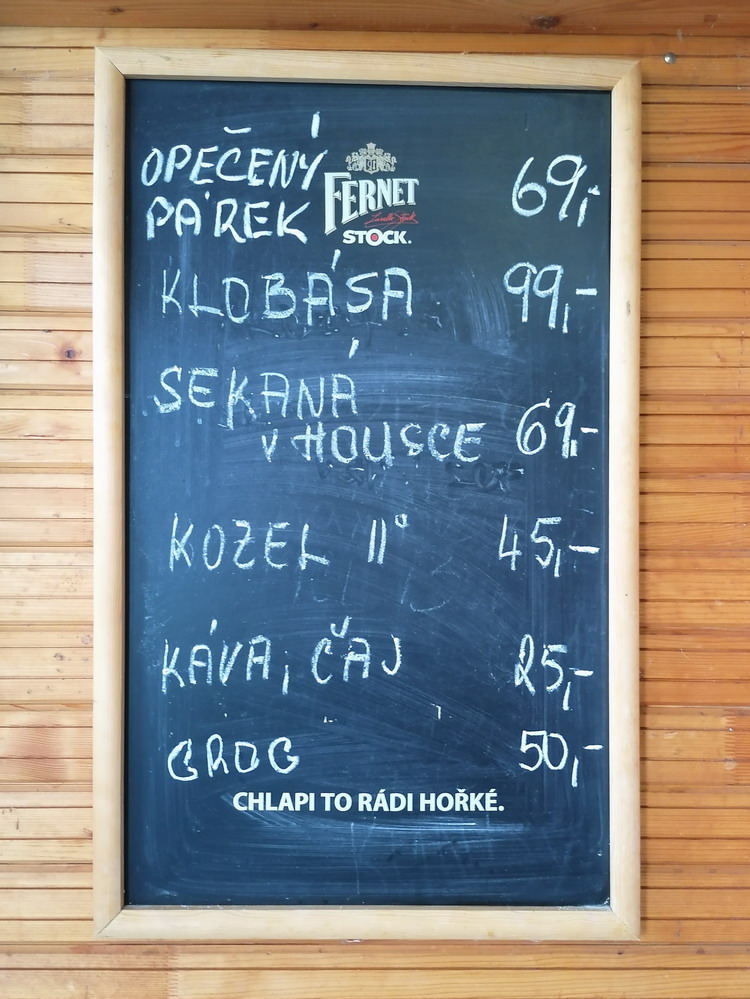 OPEČENÝ
PÁREK 69,-
FERNET
STOCK.
KLOBÁSA 99,-
SEKANÁ
V HOUSCE 69,-
KOZEL 11° 45,-
KÁVA, ČAJ 25,-
GROG 50,-
CHLAPI TO RÁDI HOŘKÉ.